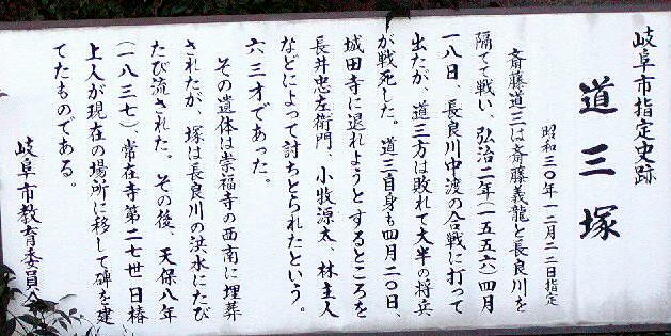 岐阜市指定史跡
道三塚
昭和三〇年一二月二二日指定
斎藤道三は斎藤義龍と長良川を
隔てて戦い、弘治二年(一五五六)四月
一八日、長良川中渡の合戦に打って
出たが、道三方は敗れて大半の将兵
が戦死した。道三自身も四月二〇日、
城田寺に退れようとするところを
長井忠左衛門、小牧源太、林主人
などによって討ちとられたという。
六三才であった。
その遺体は崇福寺の西南に埋葬
されたが、塚は長良川の洪水にたび
たび流された。その後、天保八年
(一八三七)、常在寺第二七世日椿
上人が現在の場所に移して碑を建
てたものである。
岐阜市教育委員会